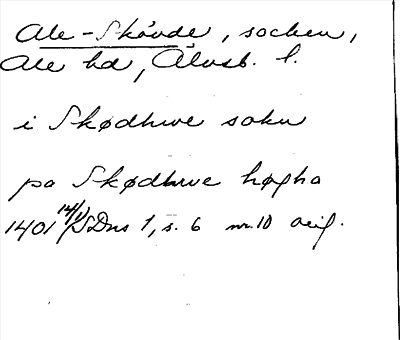 Ale-Skövde, socken,
Ale hd, Älvsb. l.
i Skødhwe sokn
pa Skødhwe høgha
1401 14/1 SDns 1, s. 6 nr. 10 orig.